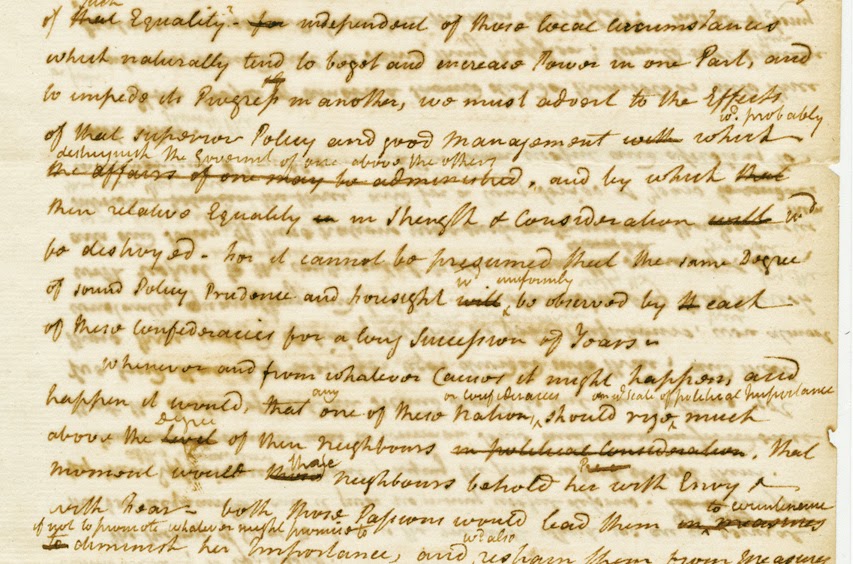 such
of that Equality - for independent of those local circumstances
which naturally tend to beget and encrease Power in one Part, and
to impede its Progress in another, we must advert to the Effects
wd. probably
of that superior Policy and good management with which
distinguish the Governmt of one above the others
the affairs of one may be administred, and by which that
their relative Equality in in Strength & Consideration will wd
be destroyed - for it cannot be presumed that the same Degree
wd uniformly
of sound Policy Prudence and foresight will be observed by each
of these Confederacies for a long Succession of Years -
Whenever and from whatever Causes it might happen, and
any or confederacies on ye scale of political Importance
happen it would, that one of these Nations should rise much
degree
above the level of their neighbours in political Consideration, that
those
moment would neighbours behold her with Envy &
with Fear - both those Passions would lead them in measures
to countenance
if not to promote whatever might promise to
to diminish her Importance, and restrain them from measures
wd also